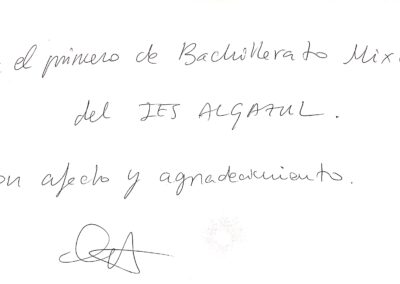 el primero de Bachillerato Mix
del IES ALGAZUL.
on afecto y agradecimiento.